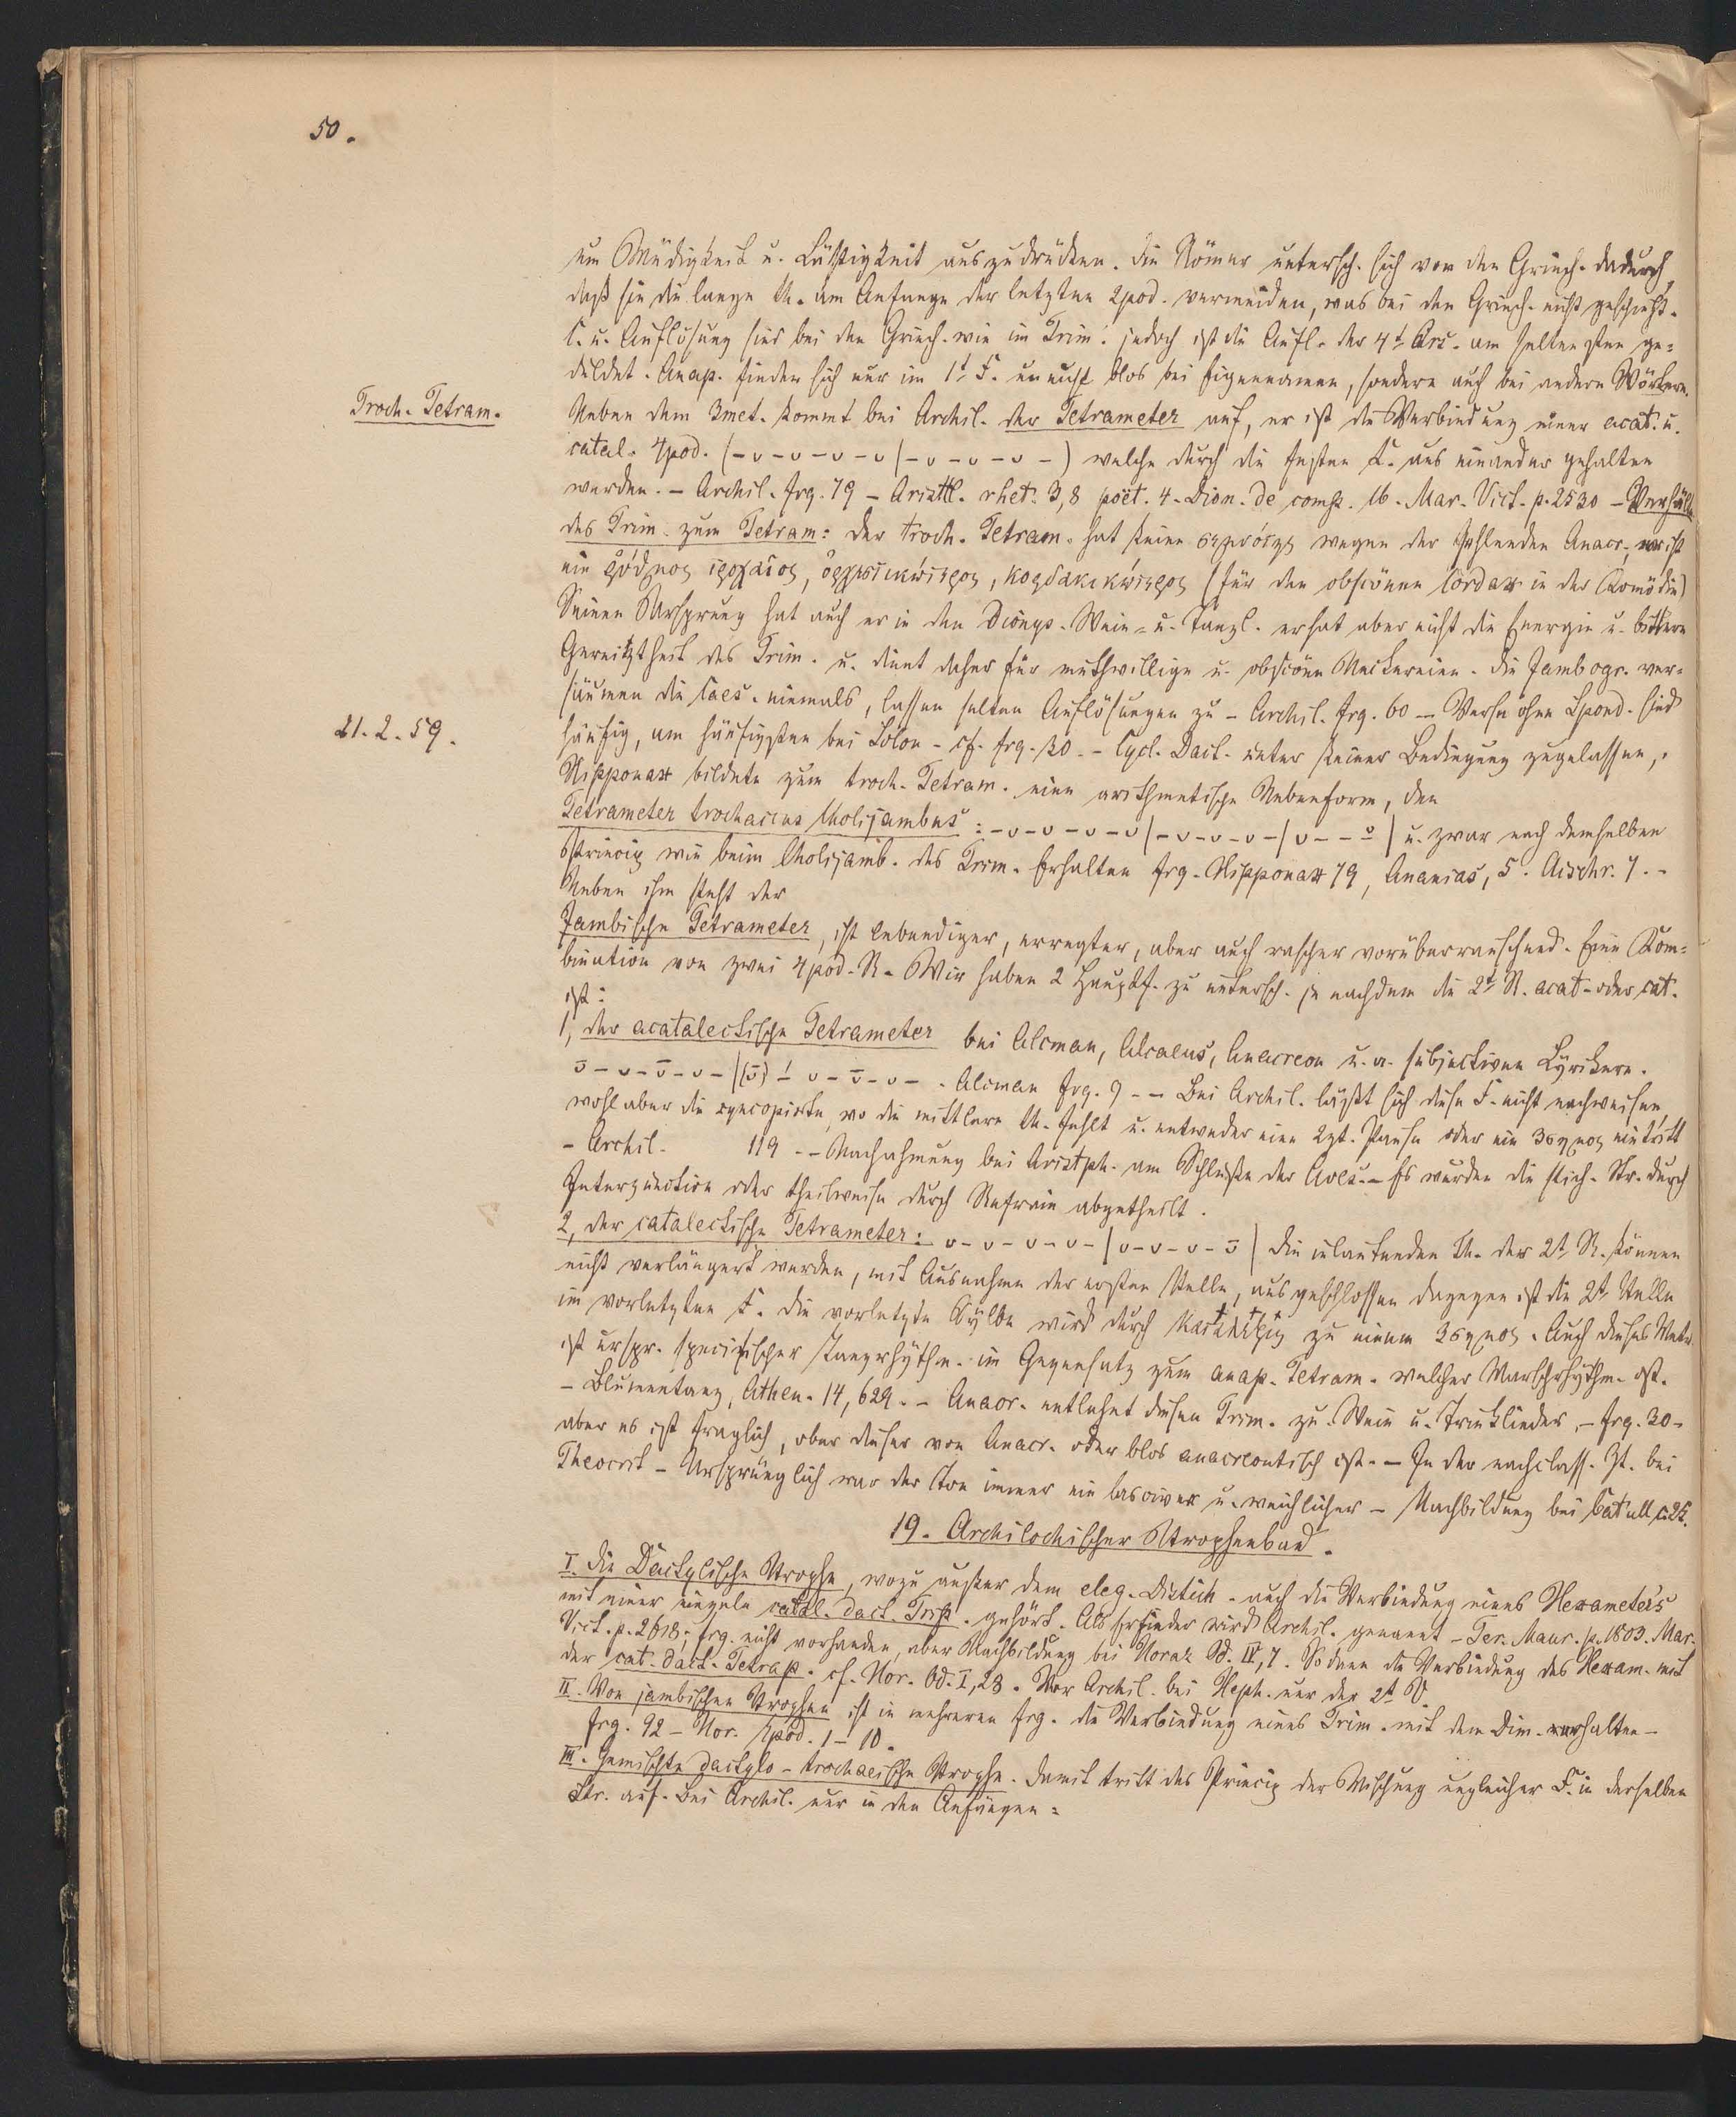 50.
um Müdigkeit u. Lässigkeit auszudrücken. Die Römer untersch. sich von den Griech. dadurch,
daß sie die lange Th. am Anfange der letzten 2pod. vermeiden, was bei den Griech. nicht geschieht.
C. u. Auflösung sind bei den Griech. wie im Trim. jedoch ist die Aufl. der 4t Ars. am seltensten ge-
duldet. Anap. finden sich nur im 1t F. u. nicht blos bei Eigennamen, sondern auch bei andern Wörtern.
Troch. Tetram.
Neben dem 3met. kommt bei Archil. der Tetrameter auf, er ist die Verbindung einer acat. u.
catal. 4pod. (– ᴗ – ᴗ – ᴗ – ᴗ | – ᴗ – ᴗ – ᴗ –) welche durch die festen C. aus einander gehalten
werden. – Archil. frg. 79 – Aristtl. rhet. 3,8 poët. 4. Dion. de comp. 16. Mar. Vict. p. 2530 – Verhältn.
des Trim. zum Tetram: Der troch. Tetram. hat keine σεμνότης wegen der fehlenden Anacr., er ist
ein ῥύθμος τροχαῖος, ὀρχηστικώτερος, κορδακικώτερος (für den obscönen Cordax in der Komödie)
Seinen Ursprung hat auch er in den Dionys. Wein- u. Tanzl. er hat aber nicht die Energie u. bittere
Gereiztheit des Trim. u. dient daher für muthwillige u. obscöne Neckereien. Die Jambogr. ver-
säumen die Caes. niemals, lassen selten Auflösungen zu – Archil. frg. 60 – Verse ohne Spond. sind
21. 2. 59.
häufig, am häufigsten bei Solon – cf. frg. 30. – Cycl. Dact. unter keiner Bedingung zugelassen,.
Hipponax bildete zum troch. Tetram. eine arithmetische Nebenform, den
Tetrameter trochaicus Cholijambus: – ᴗ – ᴗ – ᴗ – ᴗ | – ᴗ – ᴗ – ᴗ – | ᴗ – – ᴗ | u. zwar nach demselben
Princip wie beim Cholijamb. des Trim. Erhalten frg. Hipponax 79, Ananias, 5. Aischr. 7. –
Neben ihm steht der
Jambische Tetrameter, ist lebendiger, erregter, aber auch rascher vorüberrauschend. Eine Kom-
bination von zwei 4pod. R. Wir haben 2 Hauptf. zu untersch. je nachdem die 2t R. acat. oder cat.
ist:
1, der acatalectische Tetrameter bei Alcman, Alcaeus, Anacreon u. a. subjectiven Lyrikern.
ᴗ – ᴗ – ᴗ – ᴗ – | (ᴗ) – ᴗ – ᴗ – ᴗ – . Alcman frg. 9 – – Bei Archil. läßt sich diese F. nicht nachweisen,
wohl aber die syncopirte, wo die mittlere Th. fehlt u. entweder eine 2zt. Pause oder ein 3σημος eintritt
– Archil. 119 – – Nachahmung bei Aristph. am Schluße der Aves. – Es wurden die stich. Str. durch
Interpunction oder theilweise durch Refrain abgetheilt.
2, der catalectische Tetrameter: ᴗ – ᴗ – ᴗ – ᴗ – | ᴗ – ᴗ – ᴗ – ᴗ | Die inlautenden Th. der 2t R. können
nicht verlängert werden, mit Ausnahme der ersten Stelle, ausgeschlossen dagegen ist die 2t Stelle
im vorletzten F. Die vorletzte Sylbe wird durch κατάληξις zu einem 3σημος. Auch dieses Metr.
ist urspr. specifischer Tanzrhythm. im Gegensatz zum anap. Tetram. welcher Marschrhythm. ist.
– Blumentanz, Athen. 14, 629. – Anacr. entlehnt diesen Trim. zu Wein u. Trinklieder, – frg. 30 –
aber es ist fraglich, ober dieser von Anacr. oder blos anacreontisch ist. – In der nachclass. Zt. bei
Theocrit – Ursprünglich war der Ton immer ein lasciver u. weichlicher – Nachbildung bei Catull c. 25.
19. Archilochischer Strophenbau.
I. Die Dactylische Strophe, wozu außer dem eleg. Distich. auch die Verbindung eines Hexameters
mit einer einzeln catal. dact. Trip. gehört. Als Erfinder wird Archil. genannt – Ter. Maur. p. 1803. Mar.
Vict. p. 2618; frg. nicht vorhanden, aber Nachbildung bei Horaz Od. IV, 7. Sodann die Verbindung des Hexam. mit
der cat. dact. Tetrap. cf. Hor. Od. I, 28. Vor Archil. bei Heph. nur der 2t V.
II. Von jambischen Strophen ist in mehreren frg. die Verbindung eines Trim. mit dem Dim. erhalten –
frg. 92 – Hor. Epod. 1 – 10.
III. Gemischte dactylo-trochaeische Strophe. Damit tritt das Princip der Mischung ungleicher F. in derselben
Str. auf. Bei Archil. nur in den Anfängen: